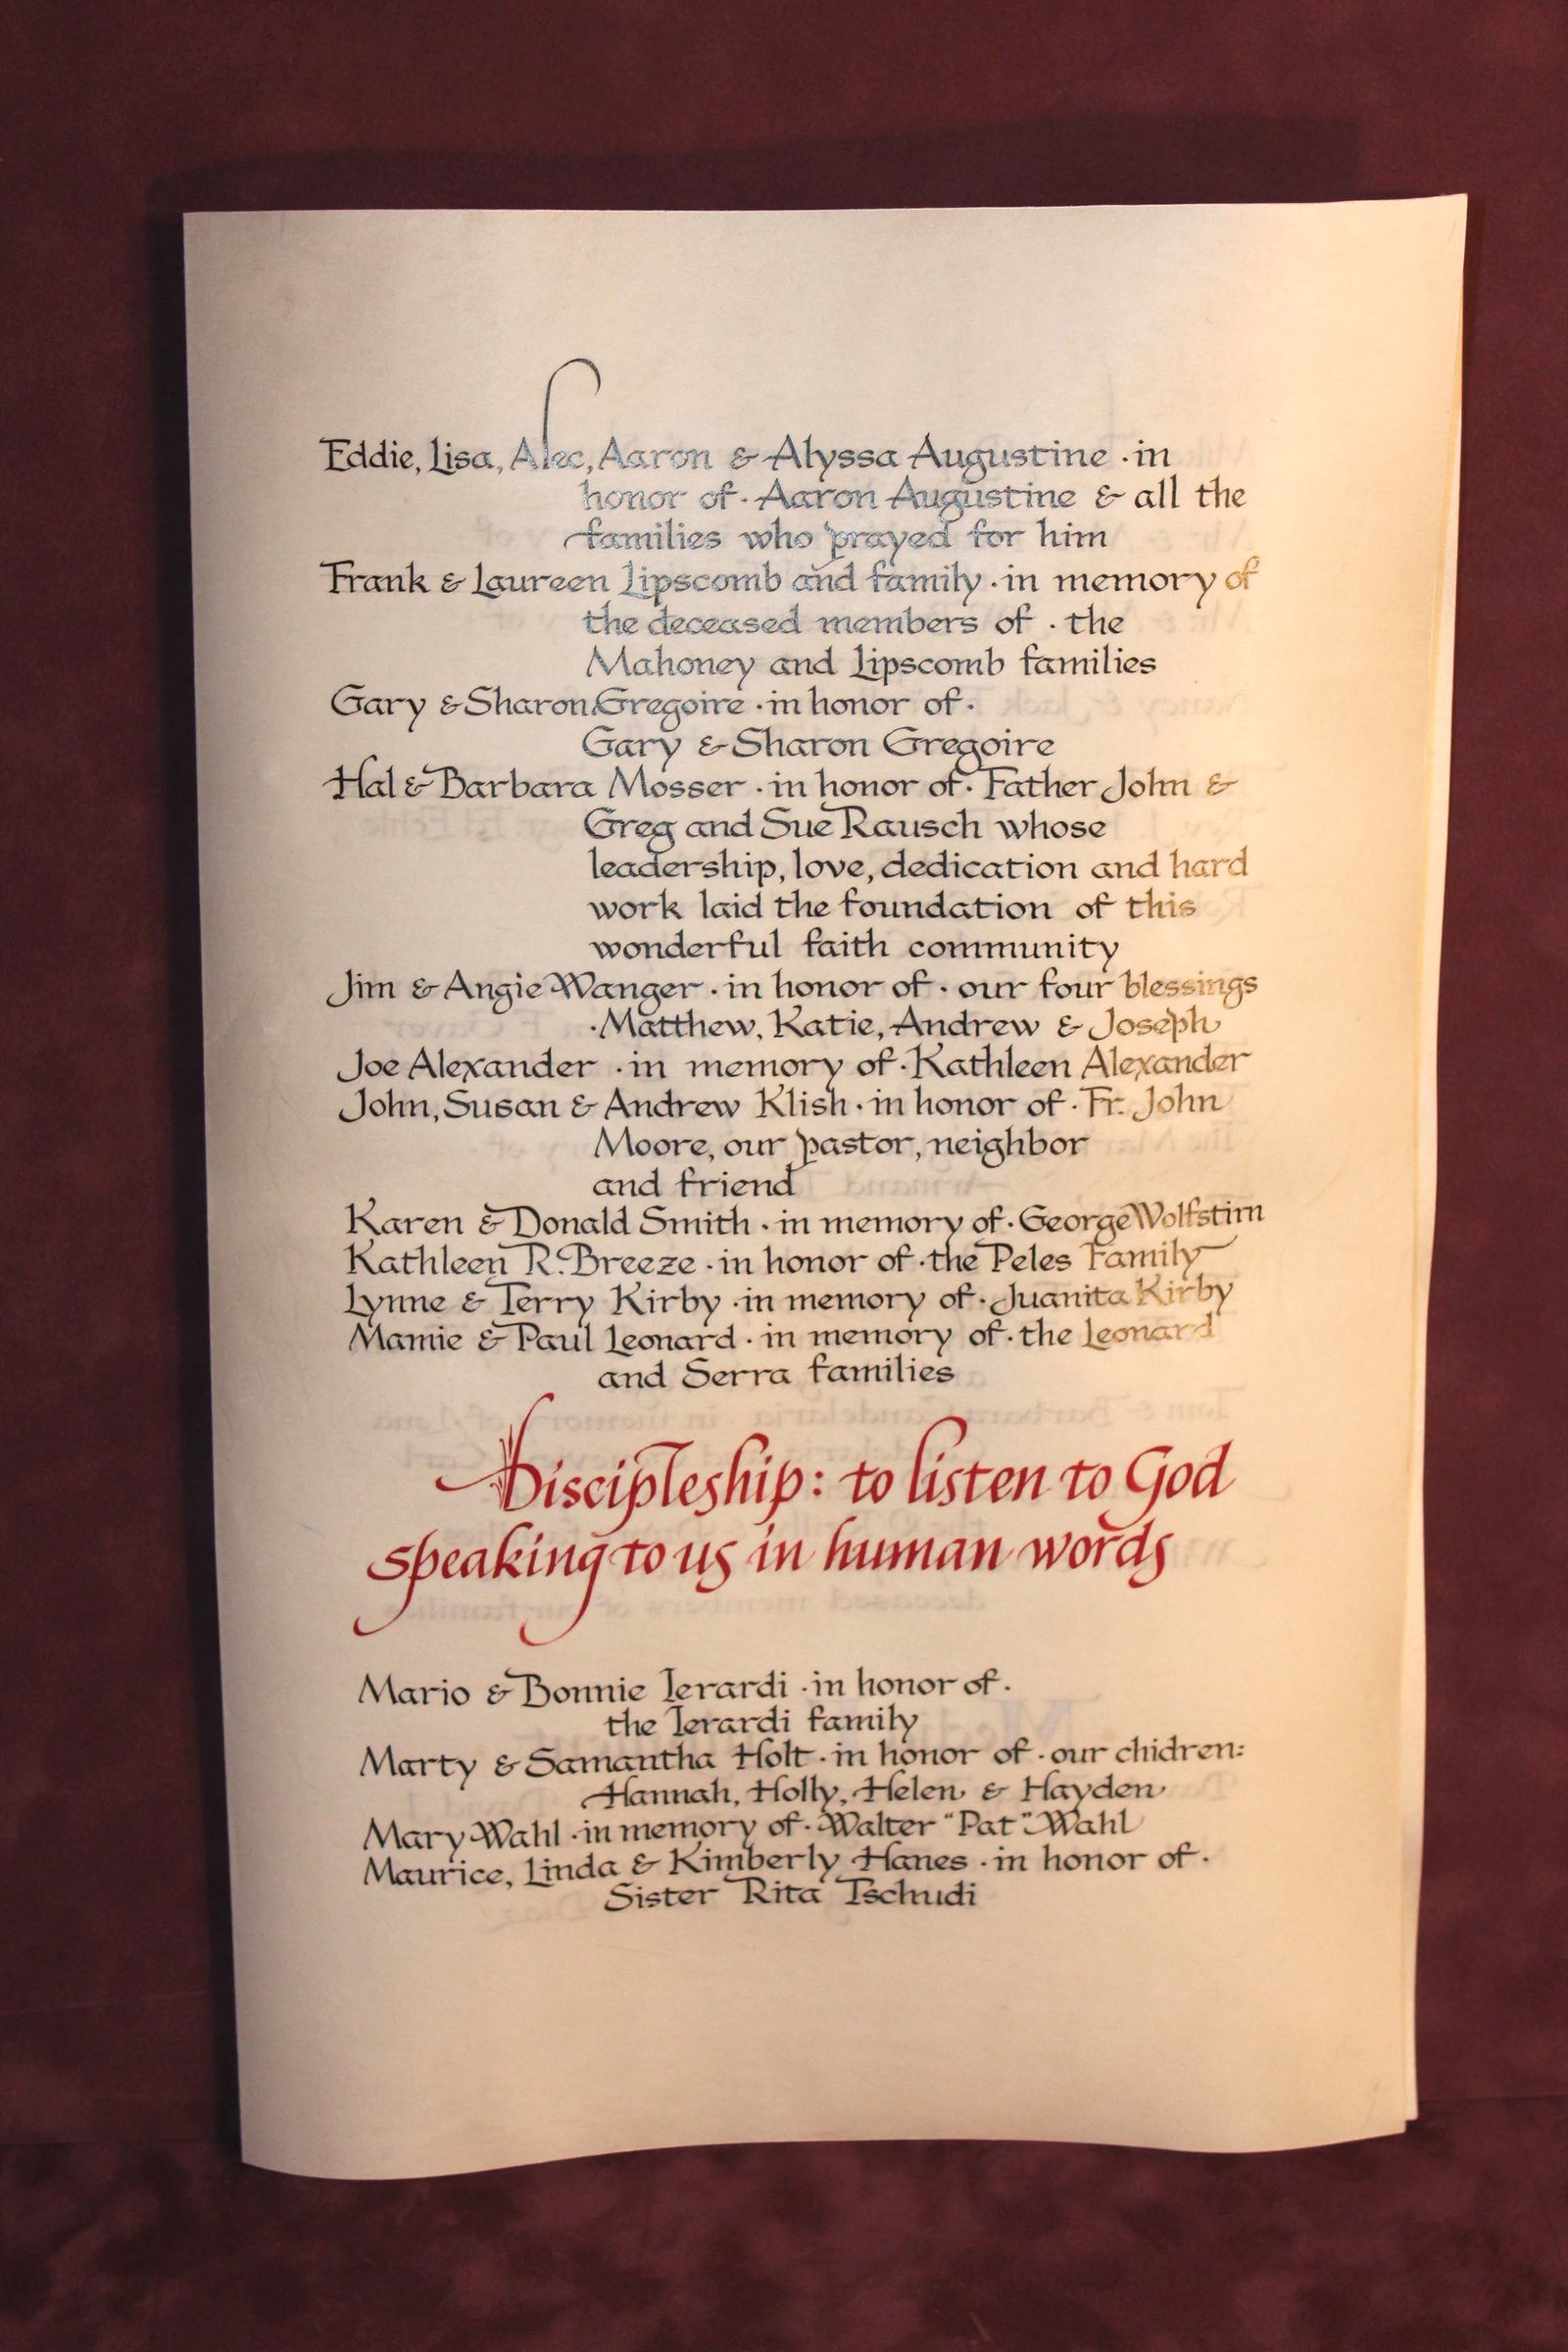 Eddie, Lisa, Alec, Aaron & Alyssa Augustine · in
honor of · Aaron Augustine & all the
families who prayed for him
Frank & Laureen Lipscomb and family · in memory of
the deceased members of · the
Mahoney and Lipscomb families
Gary & Sharon Gregoire · in honor of ·
Gary & Sharon Gregoire
Hal & Barbara Mosser · in honor of · Father John &
Greg and Sue Rausch whose
leadership, love, dedication and hard
work laid the foundation of this
wonderful faith community
Jim & Angie Wanger · in honor of · our four blessings
· Matthew, Katie, Andrew & Joseph
Joe Alexander · in memory of · Kathleen Alexander
John, Susan & Andrew Klish · in honor of · Fr. John
Moore, our pastor, neighbor
and friend
Karen & Donald Smith · in memory of · George Wolfstirn
Kathleen R. Breeze · in honor of · the Peles Family
Lynne & Terry Kirby · in memory of · Juanita Kirby
Mamie & Paul Leonard · in memory of · the Leonard
and Serra families
Discipleship: to listen to God
speaking to us in human words
Mario & Bonnie Ierardi · in honor of ·
the Ierardi family
Marty & Samantha Holt · in honor of · our chidren:
Hannah, Holly, Helen & Hayden
Mary Wahl · in memory of · Walter "Pat" Wahl
Maurice, Linda & Kimberly Hanes · in honor of ·
Sister Rita Tschudi